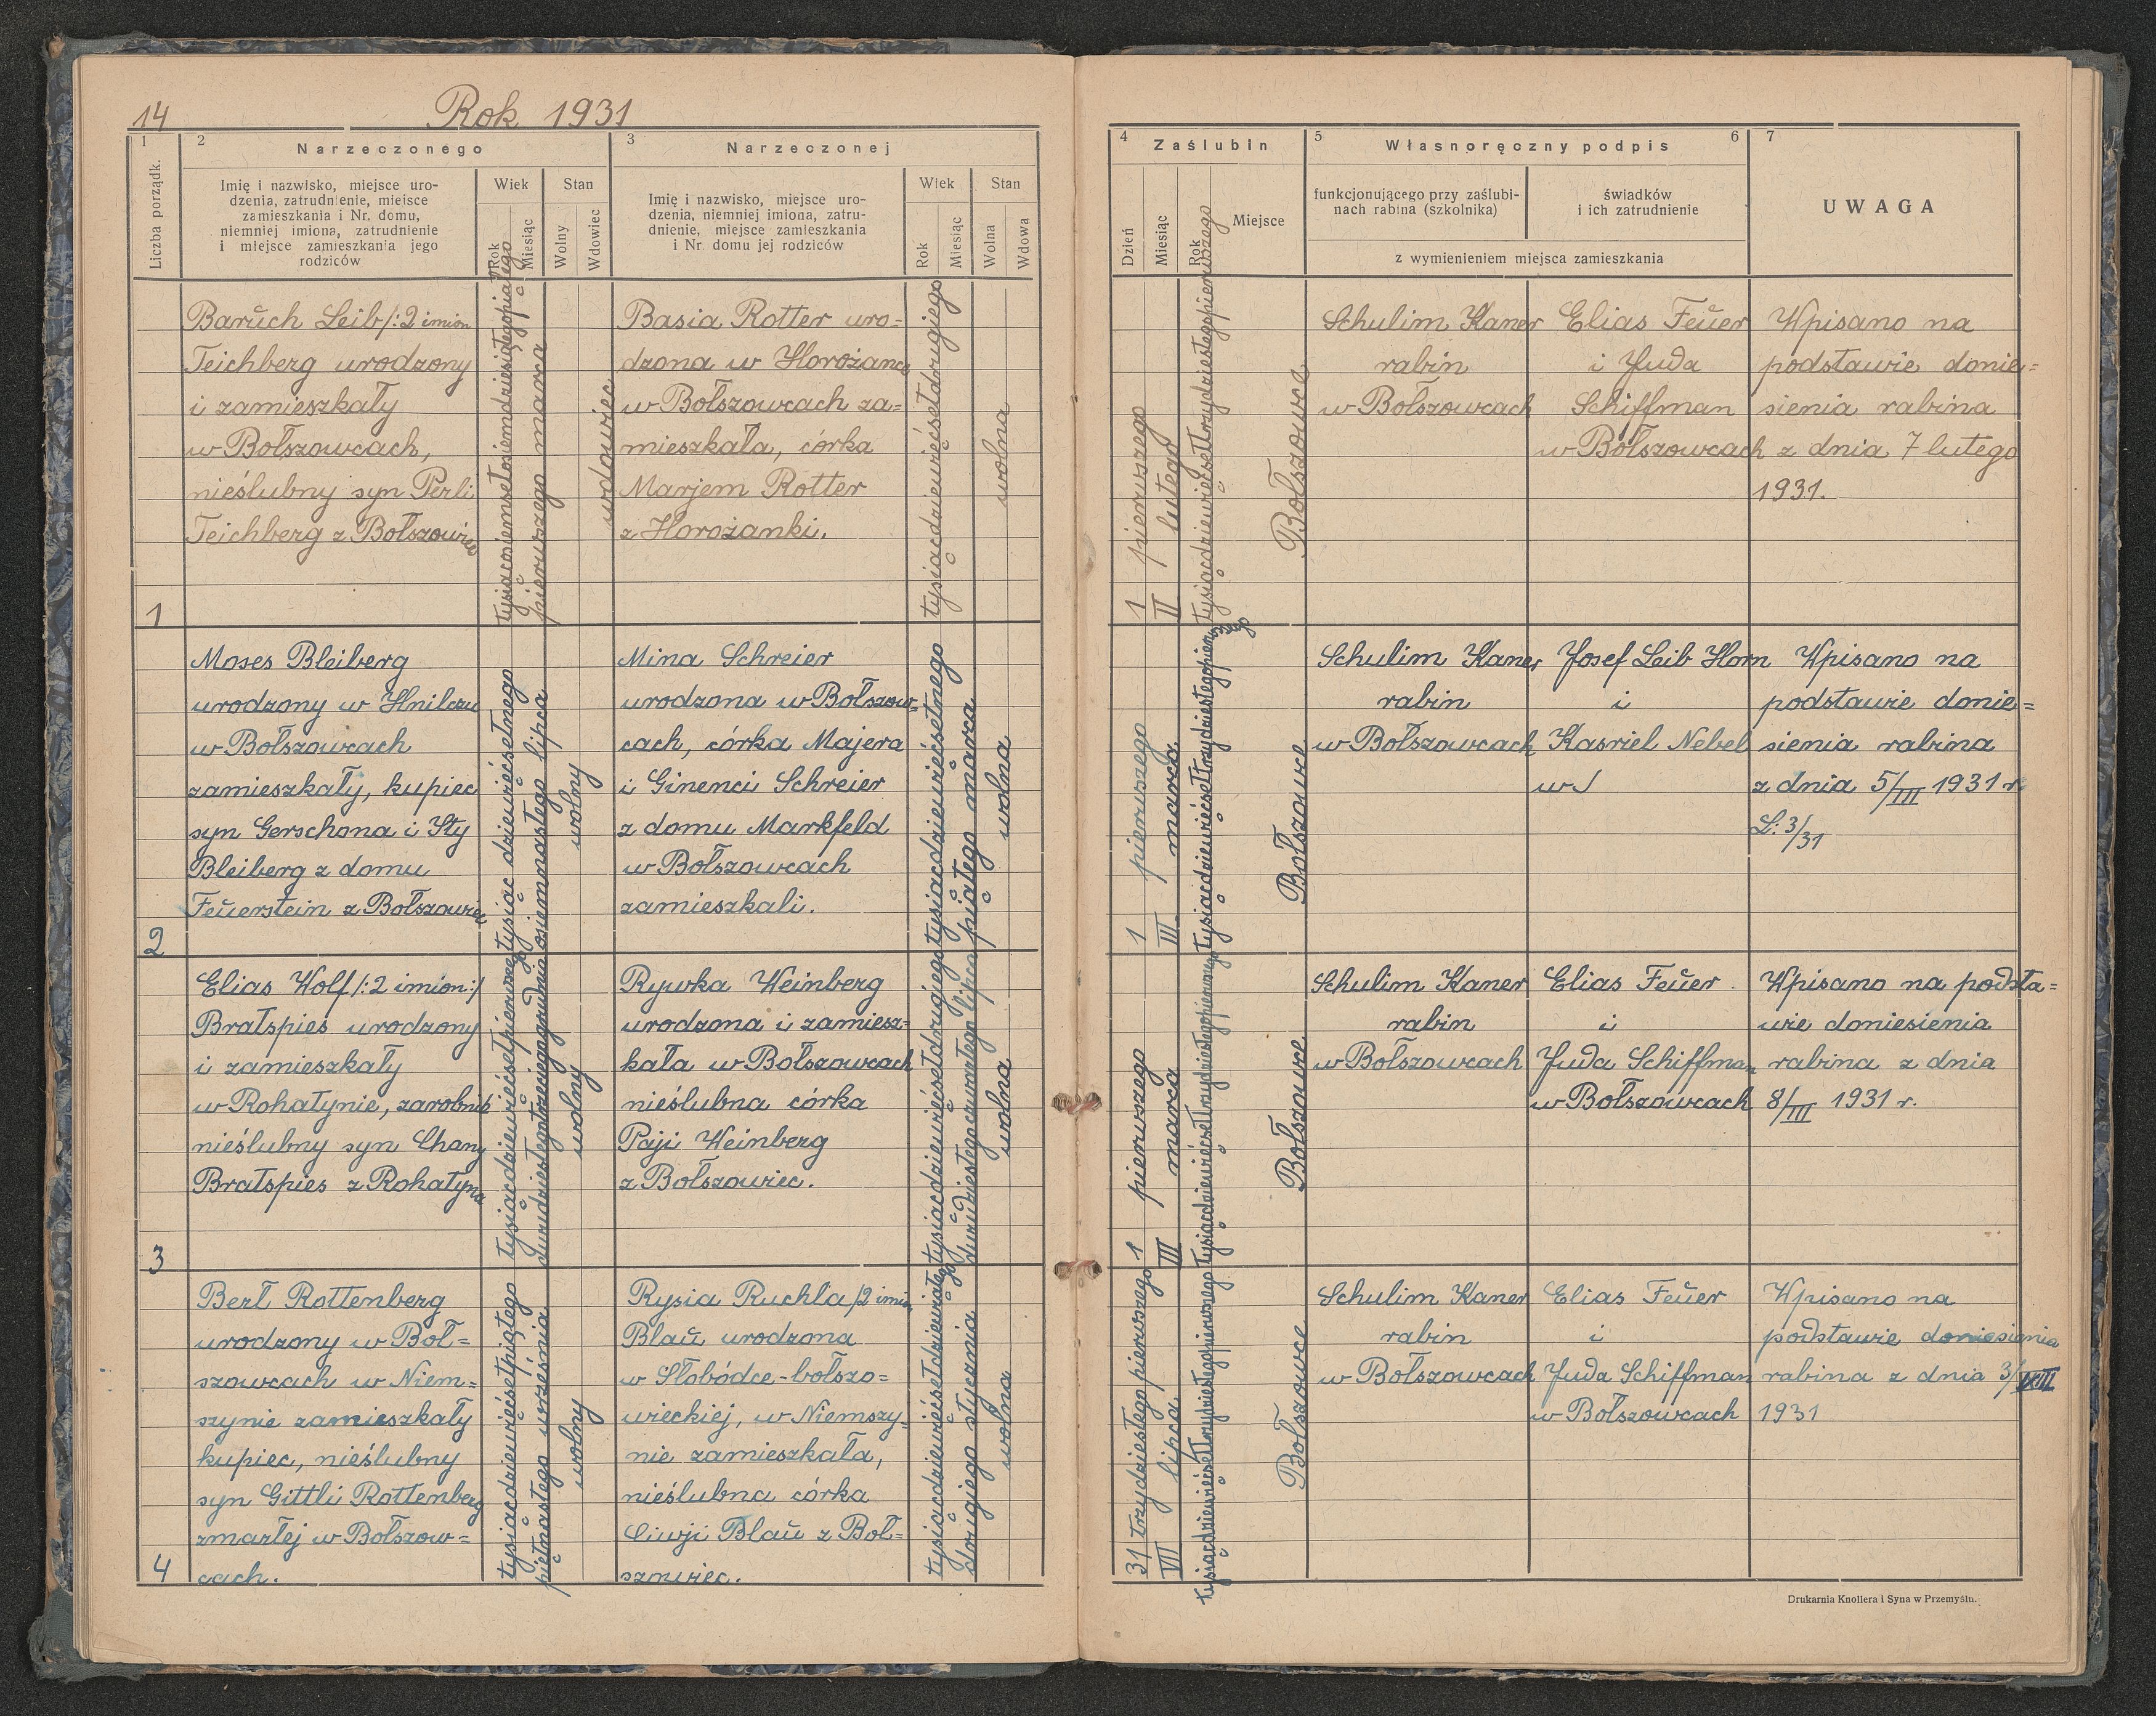 14
Rok 1931
1
2
Narzeczonego
3
Narzeczonej
Liczba porządk.
Imię i nazwisko, miejsce uro-
dzenia, zatrudnienie, miejsce
zamieszkania i Nr. domu,
niemniej imiona, zatrudnienie
i miejsce zamieszkania jego
rodziców
Wiek
Stan
Rok
Miesiąc
Wolny
Wdowiec
Imię i nazwisko, miejsce uro-
dzenia, niemniej imiona, zatru-
dnienie, miejsce zamieszkania
i Nr. domu jej rodziców
Wiek
Stan
Rok
Miesiąc
Wolna
Wdowa
4
Zaślubin
5
Własnoręczny podpis
6
7
Dzień
Miesiąc
Rok
Miejsce
funkcjonującego przy zaślubi-
nach rabina (szkolnika)
świadków
i ich zatrudnienie
z wymienieniem miejsca zamieszkania
UWAGA
1
Baruch Leib /:2 imion
Teichberg urodzony
i zamieszkały
w Bołszowcach,
nieślubny syn Perli
Teichberg z Bołszowiec
tysiącośmsetosiemdziesiątegopiątego
pierwszego marca
wdowiec
Basia Rotter uro=
dzona w Horożance
w Bołszowcach za=
mieszkała, córka
Marjem Rotter
z Horożanki.
tysiącdziewięćsetdrugiego
wolna
1 pierwszego
II lutego
tysiącdziewięćsettrzydziestegopierwszego
Bołszowce
Schulim Kaner
rabin
w Bołszowcach
Elias Feuer
i Juda
Schiffman
w Bołszowcach
Wpisano na
podstawie donie=
sienia rabina
z dnia 7 lutego
1931.
2
Moses Bleiberg
urodzony w Hnilczu
w Bołszowcach
zamieszkały, kupiec
syn Gerschona i Ity
Bleiberg z domu
Feuerstein z Bołszowiec
tysiąc dziewięćsetnego
osiemnastego lipca
wolny
Mina Schreier
urodzona w Bołszow=
cach, córka Majera
i Ginenci Schreier
z domu Markfeld
w Bołszowcach
zamieszkali.
tysiącdziewięćsetnego
piątego marca
wolna
1 pierwszego
III marca
tysiącdziewięćsettrzydziestegopierwszego
Bołszowce
Schulim Kaner
rabin
w Bołszowcach
Josef Leib Horn
i
Kasriel Nebel
w
Wpisano na
podstawie donie=
sienia rabina
z dnia 5/III 1931 r.
L: 3/31
3
Elias Wolf /:2 imion:/
Bratspies urodzony
i zamieszkały
w Rohatynie, zarobnik
nieślubny syn Chany
Bratspies z Rohatyna
tysiącdziewięćsetpierwszego
dwudziestegotrzeciego grudnia
wolny
Rywka Weinberg
urodzona i zamiesz=
kała w Bołszowcach
nieślubna córka
Paji Weinberg
z Bołszowiec.
tysiącdziewięćsetdrugiego
dwudziestegoczwartego lipca
wolna
1 pierwszego
III marca
tysiącdziewięćsettrzydziestegopierwszego
Bołszowce
Schulim Kaner
rabin
w Bołszowcach
Elias Feuer
i
Juda Schiffman
w Bołszowcach
Wpisano na podsta=
wie doniesienia
rabina z dnia
8/III 1931 r.
4
Berl Rottenberg
urodzony w Boł=
szowcach w Niem=
szynie zamieszkały
kupiec, nieślubny
syn Gittli Rottenberg
zmarłej w Bołszow=
cach.
tysiącdziewięćsetpiątego
piętnastego września
wolny
Rysia Ruchla /2 imion
Blau urodzona
w Słobódce-bołszo=
wieckiej, w Niemszy=
nie zamieszkała,
nieślubna córka
Ciwji Blau z Boł=
szowiec.
tysiącdziewięćsetdziewiątego
drugiego stycznia
wolna
31 trzydziestego pierwszego
VII lipca
tysiącdziewięćsettrzydziestegopierwszego
Bołszowce
Schulim Kaner
rabin
w Bołszowcach
Elias Feuer
i
Juda Schiffman
w Bołszowcach
Wpisano na
podstawie doniesienia
rabina z dnia 3/VIII
1931
Drukarnia Knollera i Syna w Przemyślu.